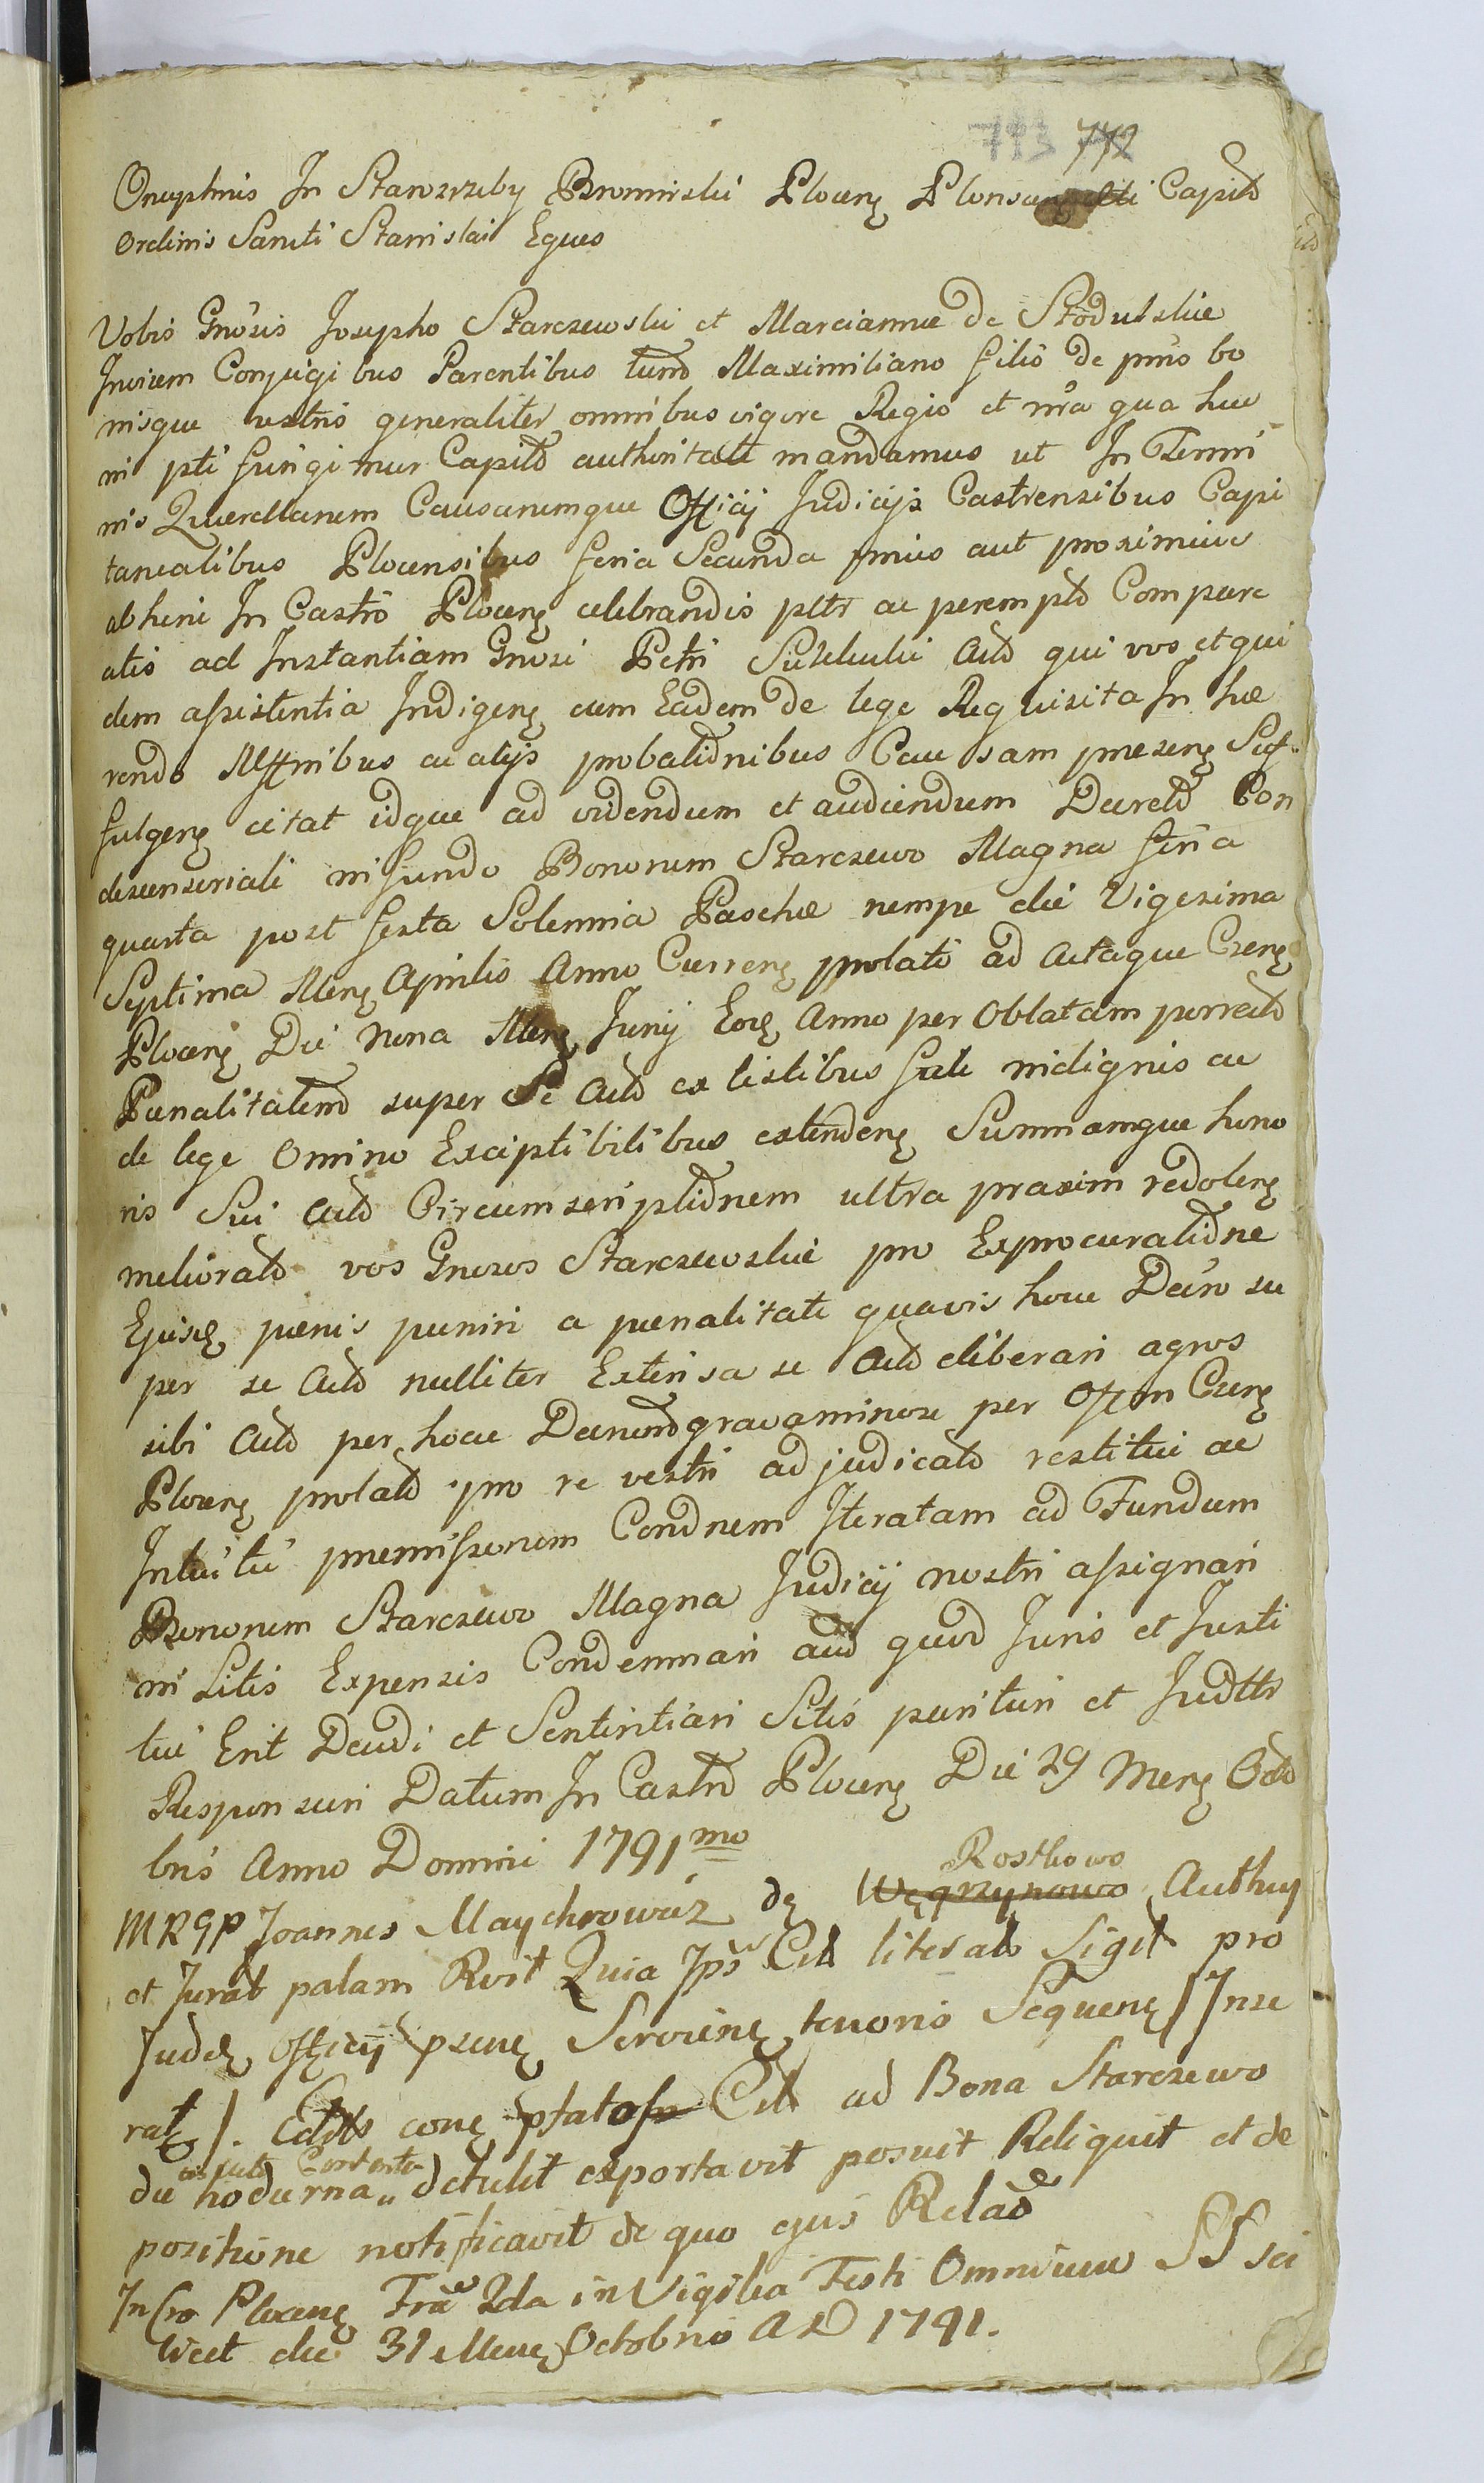 743 772
Onuphrius In Starozrzeby Bromirski Plocen Plonscen Capit
Ordinis Sancti Stanislai Eques
Vobis Gnosis Josepho Starczewski et Mariannæ de
Invicem Conjugibus Parentibus tum Maximiliano filio de pmis bo
nisque vestris generaliter omnibus vigore Regio et nra qua hac
in pti fungimur Capit authoritate mandamus ut In Termi
nis Querellarum Causarumque Officij Judicijs Castrensibus Capi
tanealibus Plocensibus feria Secunda pmis aut proximius
abhinc In Castro Plocen celebrandis pltr ac perempt Compare
atis ad Instantiam Gnosi Petri Act qui vos et qui
dem assistentia Indigen cum Eadem de lege Requisita In hæ
rendo ac alijs probationibus Causam præsen Suf
fulgen citat idque ad videndum et audiendum Decreto Con
descensoriali in fundo Bonorum Starczewo Magna feria
quarta post festa Solennia Paschæ nempe die Vigesima
Septima Men Aprilis Anno Curren prolati ad Actaque Csen
Plocen Die Nona Men Junij Eod Anno per Oblatam porrect
Pœnalitatem super Se Act ex testibus fide indignis ac
de lege Omino Exciptibilibus extenden Summamque hono
ris Sui Act Circumscriptionem ultra praxim redolen
meliorat vos Gnosos Starczewskie pro Exprocuratione
Ejusd pœnis puniri a pœnalitate quavis hocce Decro su
per se Act nulliter Extensa se Act eliberari agros
sibi Act per hocce Decretum gravaminose per Offm Csen
Plocen prolat pro re vestri adjudicat restitui ac
Intuitu præmissorum Condnem Iteratam ad Fundum
Bonorum Starczewo Magna Judicij nostri assignari
in Litis Expensis Condemnari aliud quod Juris et Justi
tiæ Erit Decidi et Sententiari Sitis parituri et Judtr
Responsuri Datum In Castro Plocen Die 29 Men Octo
bris Anno Domini 1791mo
MRGP Joannes Maychrowicz de Węgrzynowo Rostkowo Authen
et Jurat palam Rvit Quia Ips Cit literal Sigil pro
Judc Officij psene Servien tenoris Sequen /Inse
rat/. ad Bona Starczewo
die hodierna detulit exportavit posuit Reliquit et de
positione notificavit de quo ejus Relao
In Cro Plocen Fria 2da in Vigilia Festi Omnium SS sci
licet die 31 Mene Octobris AD 1791.